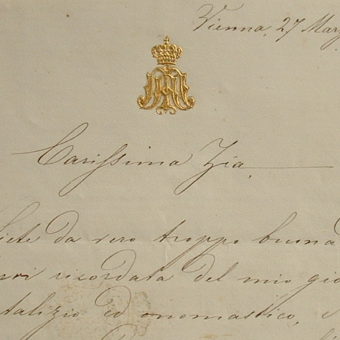 Vienna, 27 Marz
Carissima Zia
Siete da vero troppo buona
ricordata del mio gio
talizio ed onomastico, e